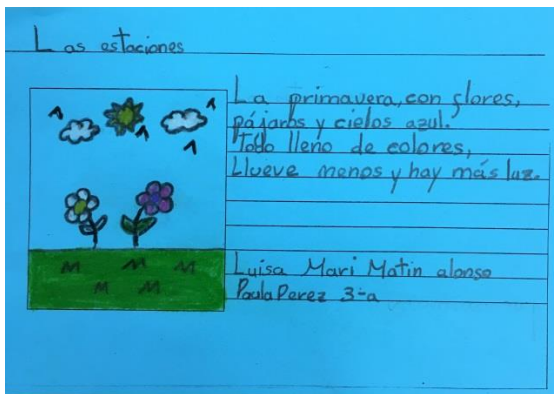 Las estaciones
La primavera, con flores,
pájaros y cielos azul.
Todo lleno de colores,
Llueve menos y hay más luz.
Luisa Mari Matin alonso
Paula Perez 3-a